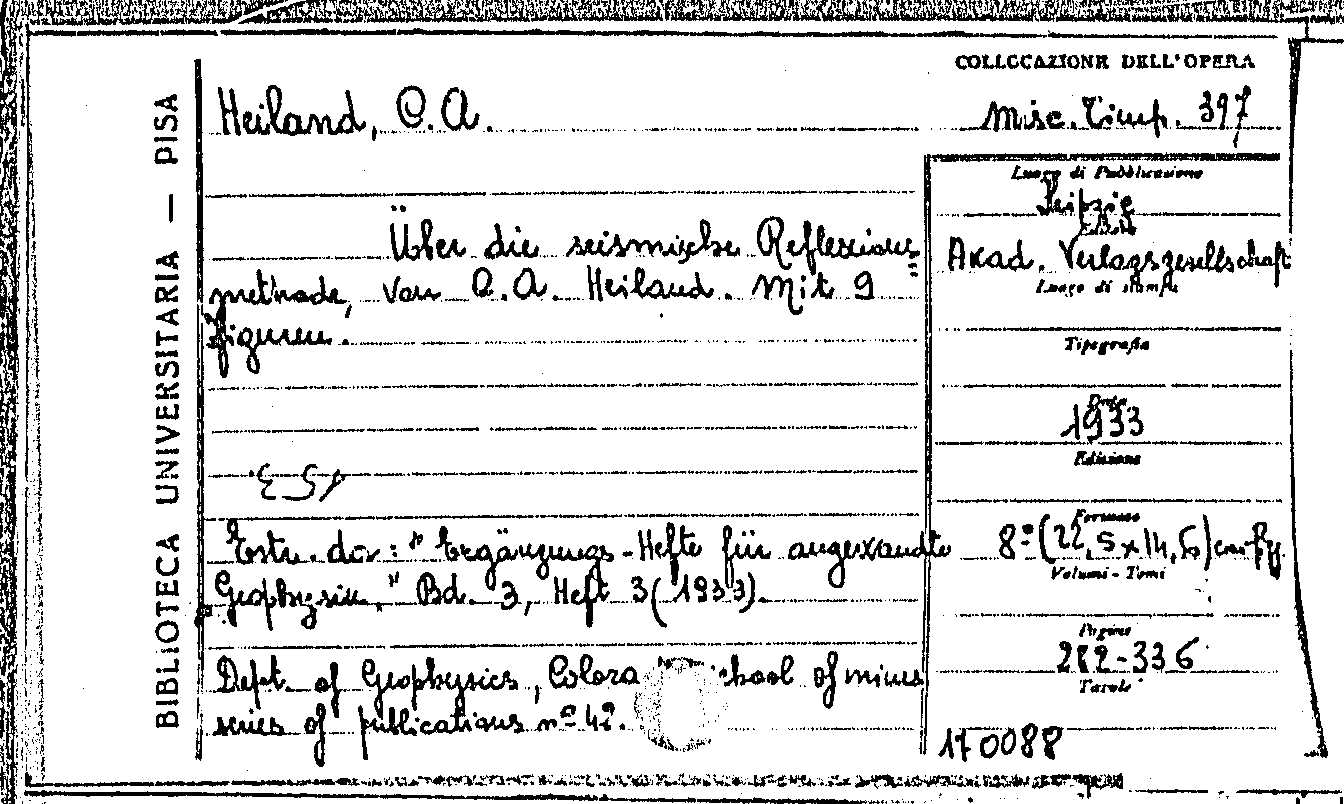 BIBLIOTECA UNIVERSITARIA — PISA
COLLOCAZIONE DELL'OPERA
Heiland, C. A.
Misc. Timp. 397
Luogo di Pubblicazione
Leipzig
Editore
Über die seismische Reflexions
Akad. Verlagsgesellschaft
methode, von C. A. Heiland. Mit 9
Luogo di stampa
Figuren.
Tipografia
Data
1933
Edizione
Formato
Estr. da: "Ergänzungs-Hefte für angewandte
8º (22,5 x 14,5)
Volumi - Tomi
Geophysik," Bd. 3, Heft 3 (1933).
Pagine
282-336
Dept. of Geophysics, of mines
Tavole
series of publications nº 42.
170088